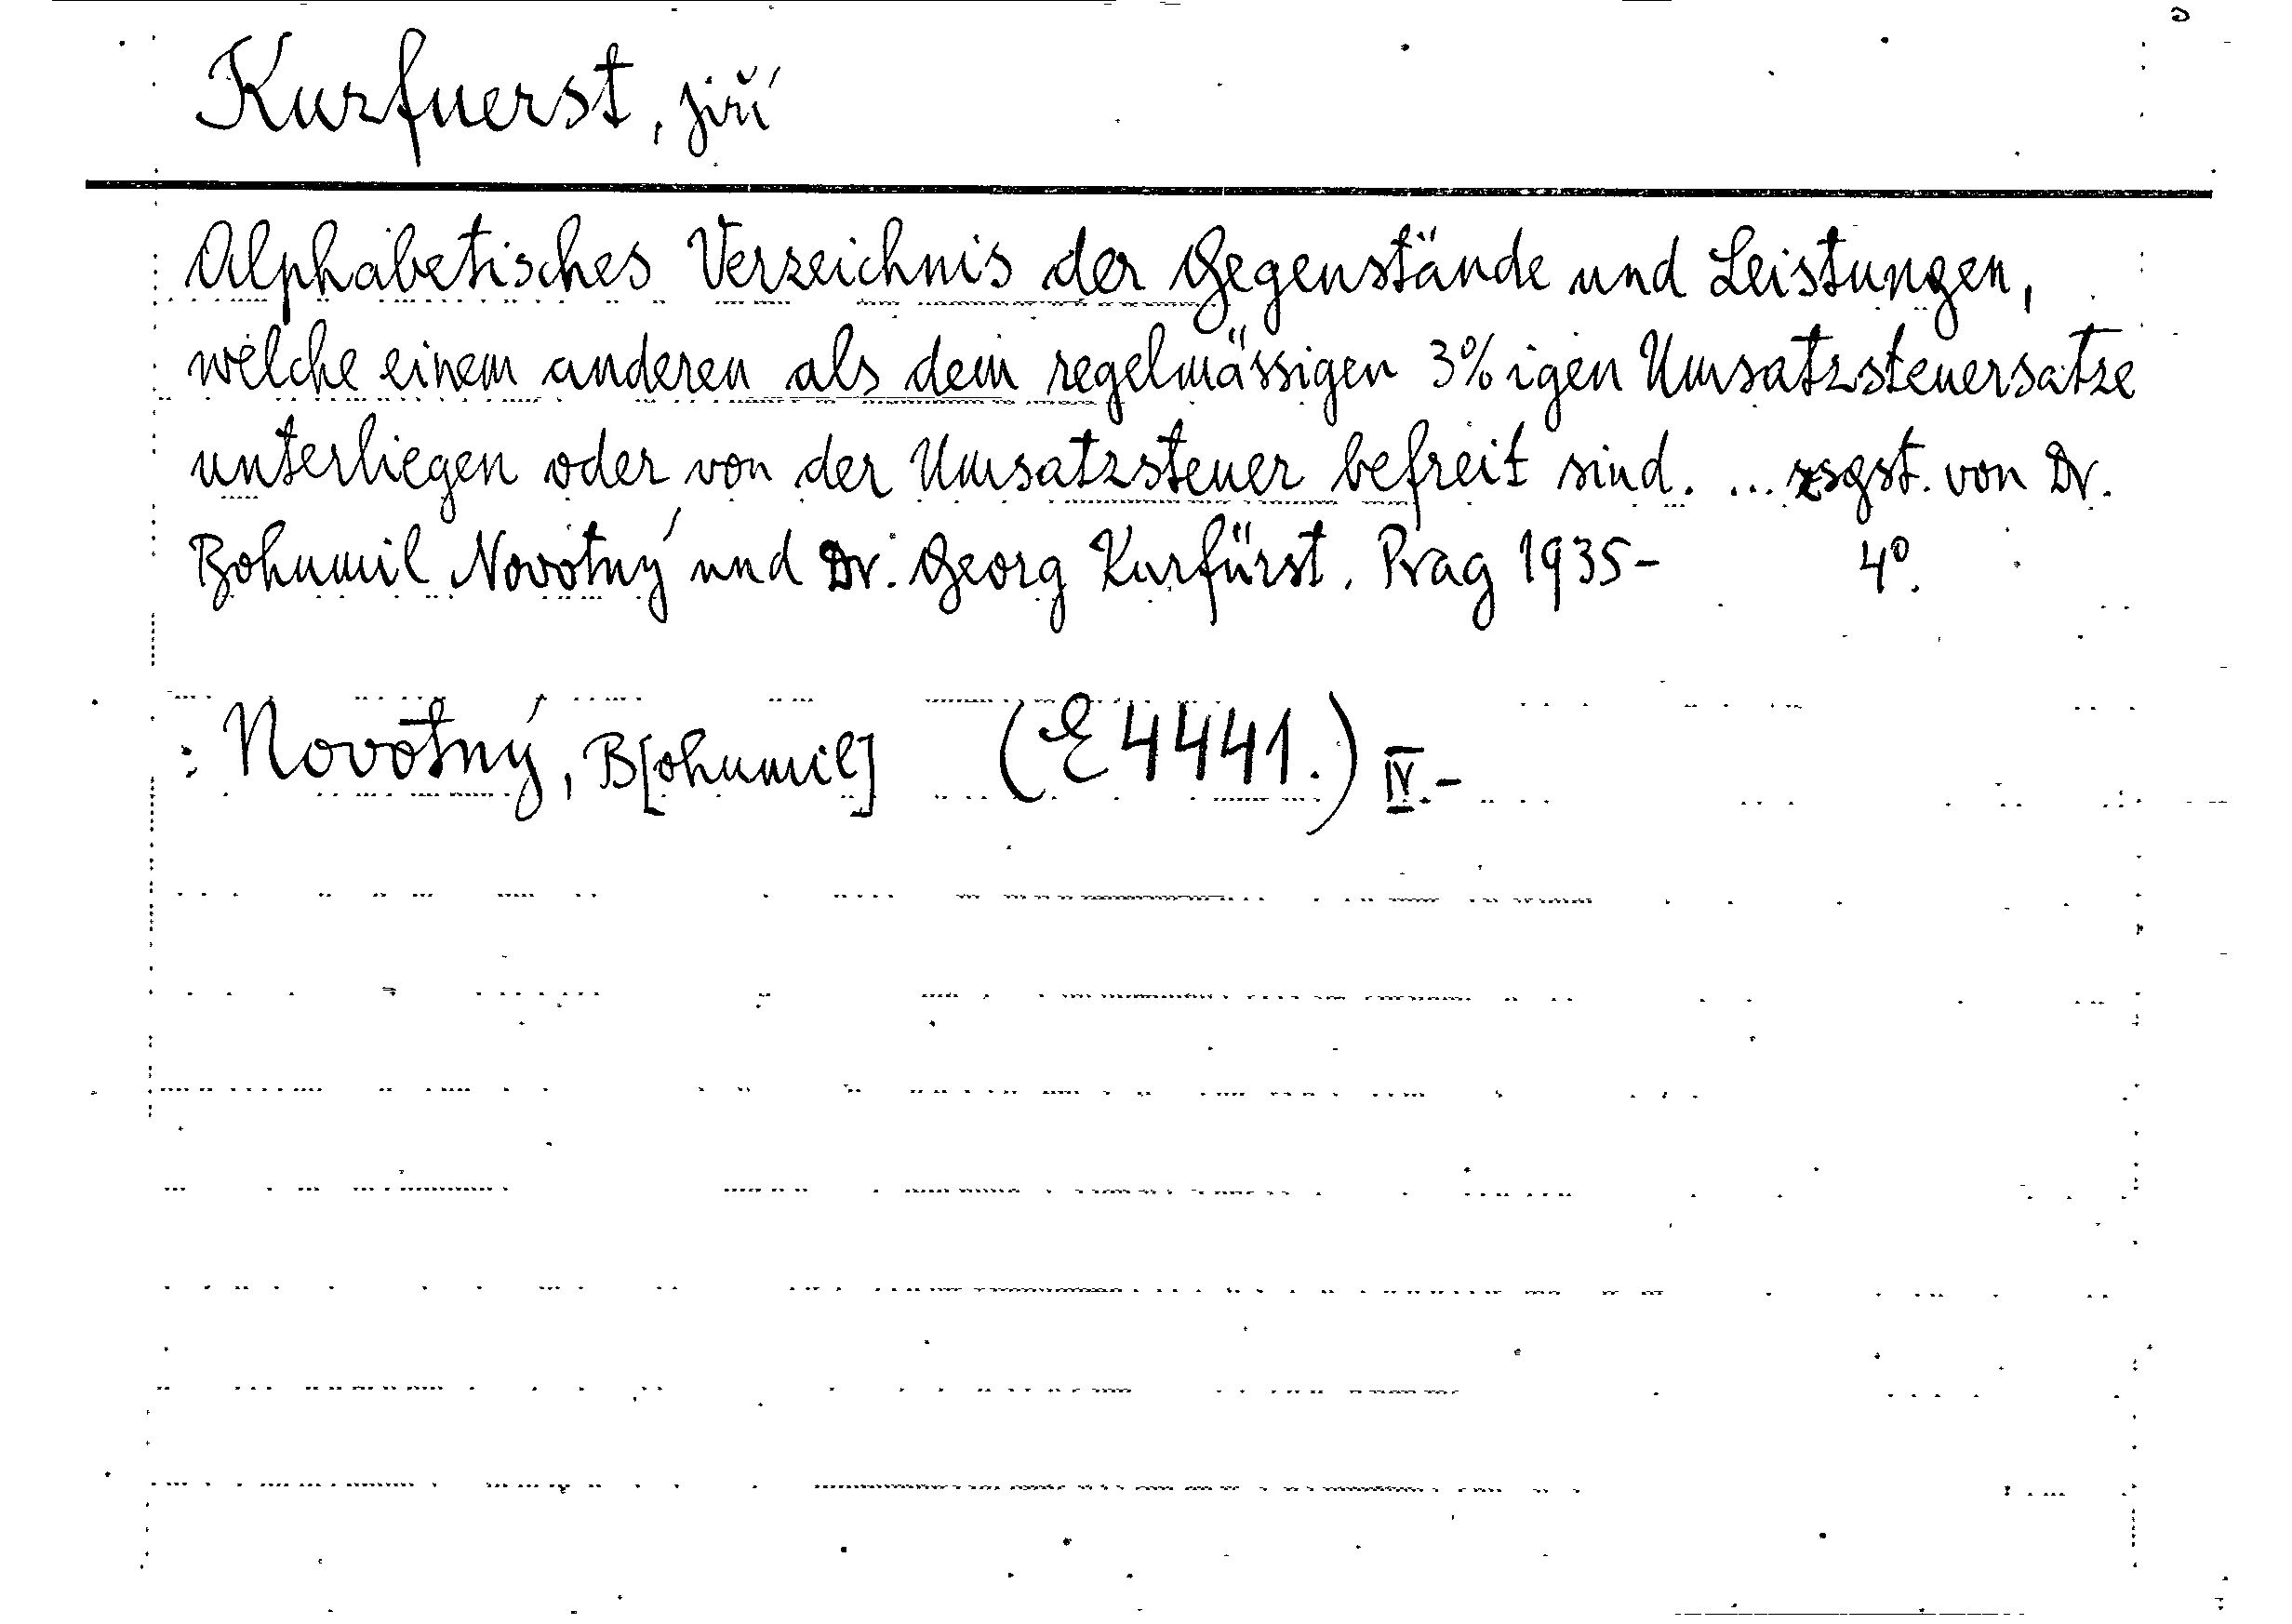 Kurfuerst, Jiří
Alphabetisches Verzeichnis der Gegenstände und Leistungen,
welche einem anderen als dem regelmässigen 3%igen Umsatzsteuersatze
unterliegen oder von der Umsatzsteuer befreit sind. ... zsgst. von Dr.
Bohumil Novotný und Dr. Georg Kurfürst. Prag 1935- 4°.
: Novotný, B[ohumil] (E 4441.) IV.-